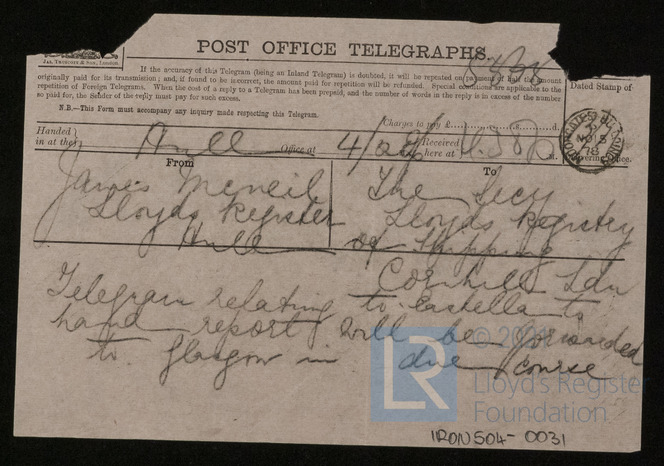 POST OFFICE TELEGRAPHS.
JAS. TRUSCOTT & SON, London.
If the accuracy of this Telegram (being an Inland Telegram) is doubted, it will be repeated on payment of half the amount
originally paid for its transmission; and, if found to be incorrect, the amount paid for repetition will be refunded. Special conditions are applicable to the
repetition of Foreign Telegrams. When the cost of a reply to a Telegram has been prepaid, and the number of words in the reply is in excess of the number
so paid for, the Sender of the reply must pay for such excess.
N.B.—This Form must accompany any inquiry made respecting this Telegram.
Dated Stamp of
Charges to pay £ s. d.
Handed in at the Hull Office at 4/28 Received here at
From
James McNeil
Lloyds Register
Hull
To
The Secy
Lloyds Registry
of Shipping
Cornhill Lon
Telegram relating to Castella to
hand report will be forwarded
to Glasgow in due course
© 20
LR
Lloyd's Register
Foundation
IRON504-0031